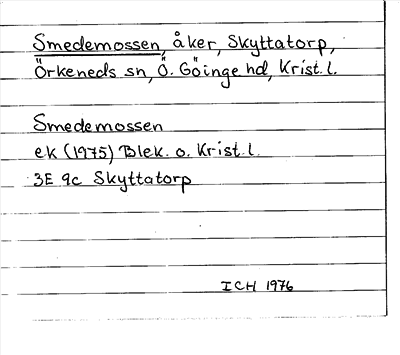 Smedemossen, åker, Skyttatorp,
Örkeneds sn, Ö. Göinge hd, Krist. l.
Smedemossen
ek (1975) Blek. o. Krist. l.
3E 9c Skyttatorp
ICH 1976